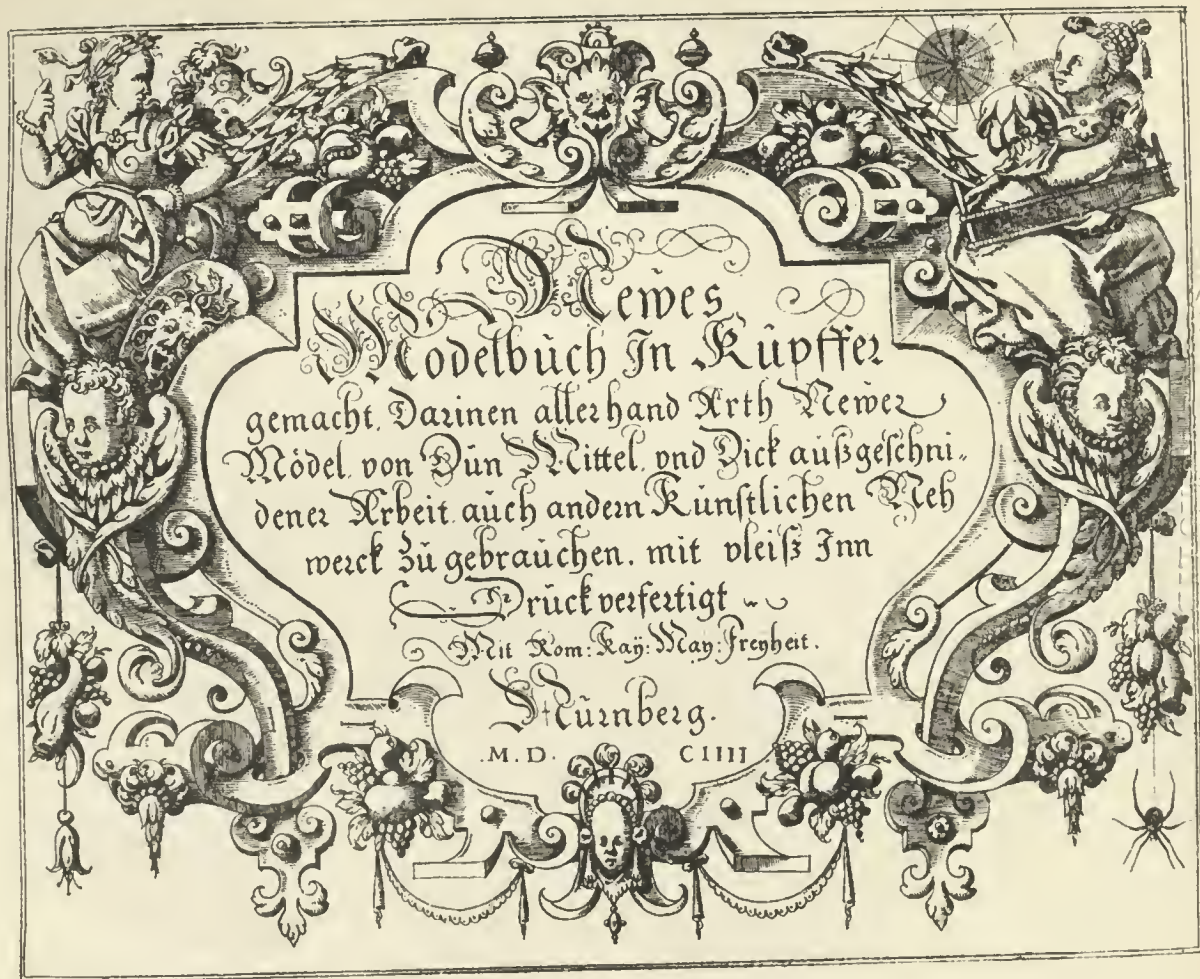 Newes
Modelbuch In Kupffer
gemacht. Darinen allerhand Arth Newer
Mödel. von Dün Mittel. vnd Dick außgeschni-
dener Arbeit. auch andern Künstlichen Neh
werck zu gebrauchen. mit vleiß Inn
Druck verfertigt
Mit Rom: Kaÿ: May: Freyheit.
Nürnberg.
.M. D. CIIII